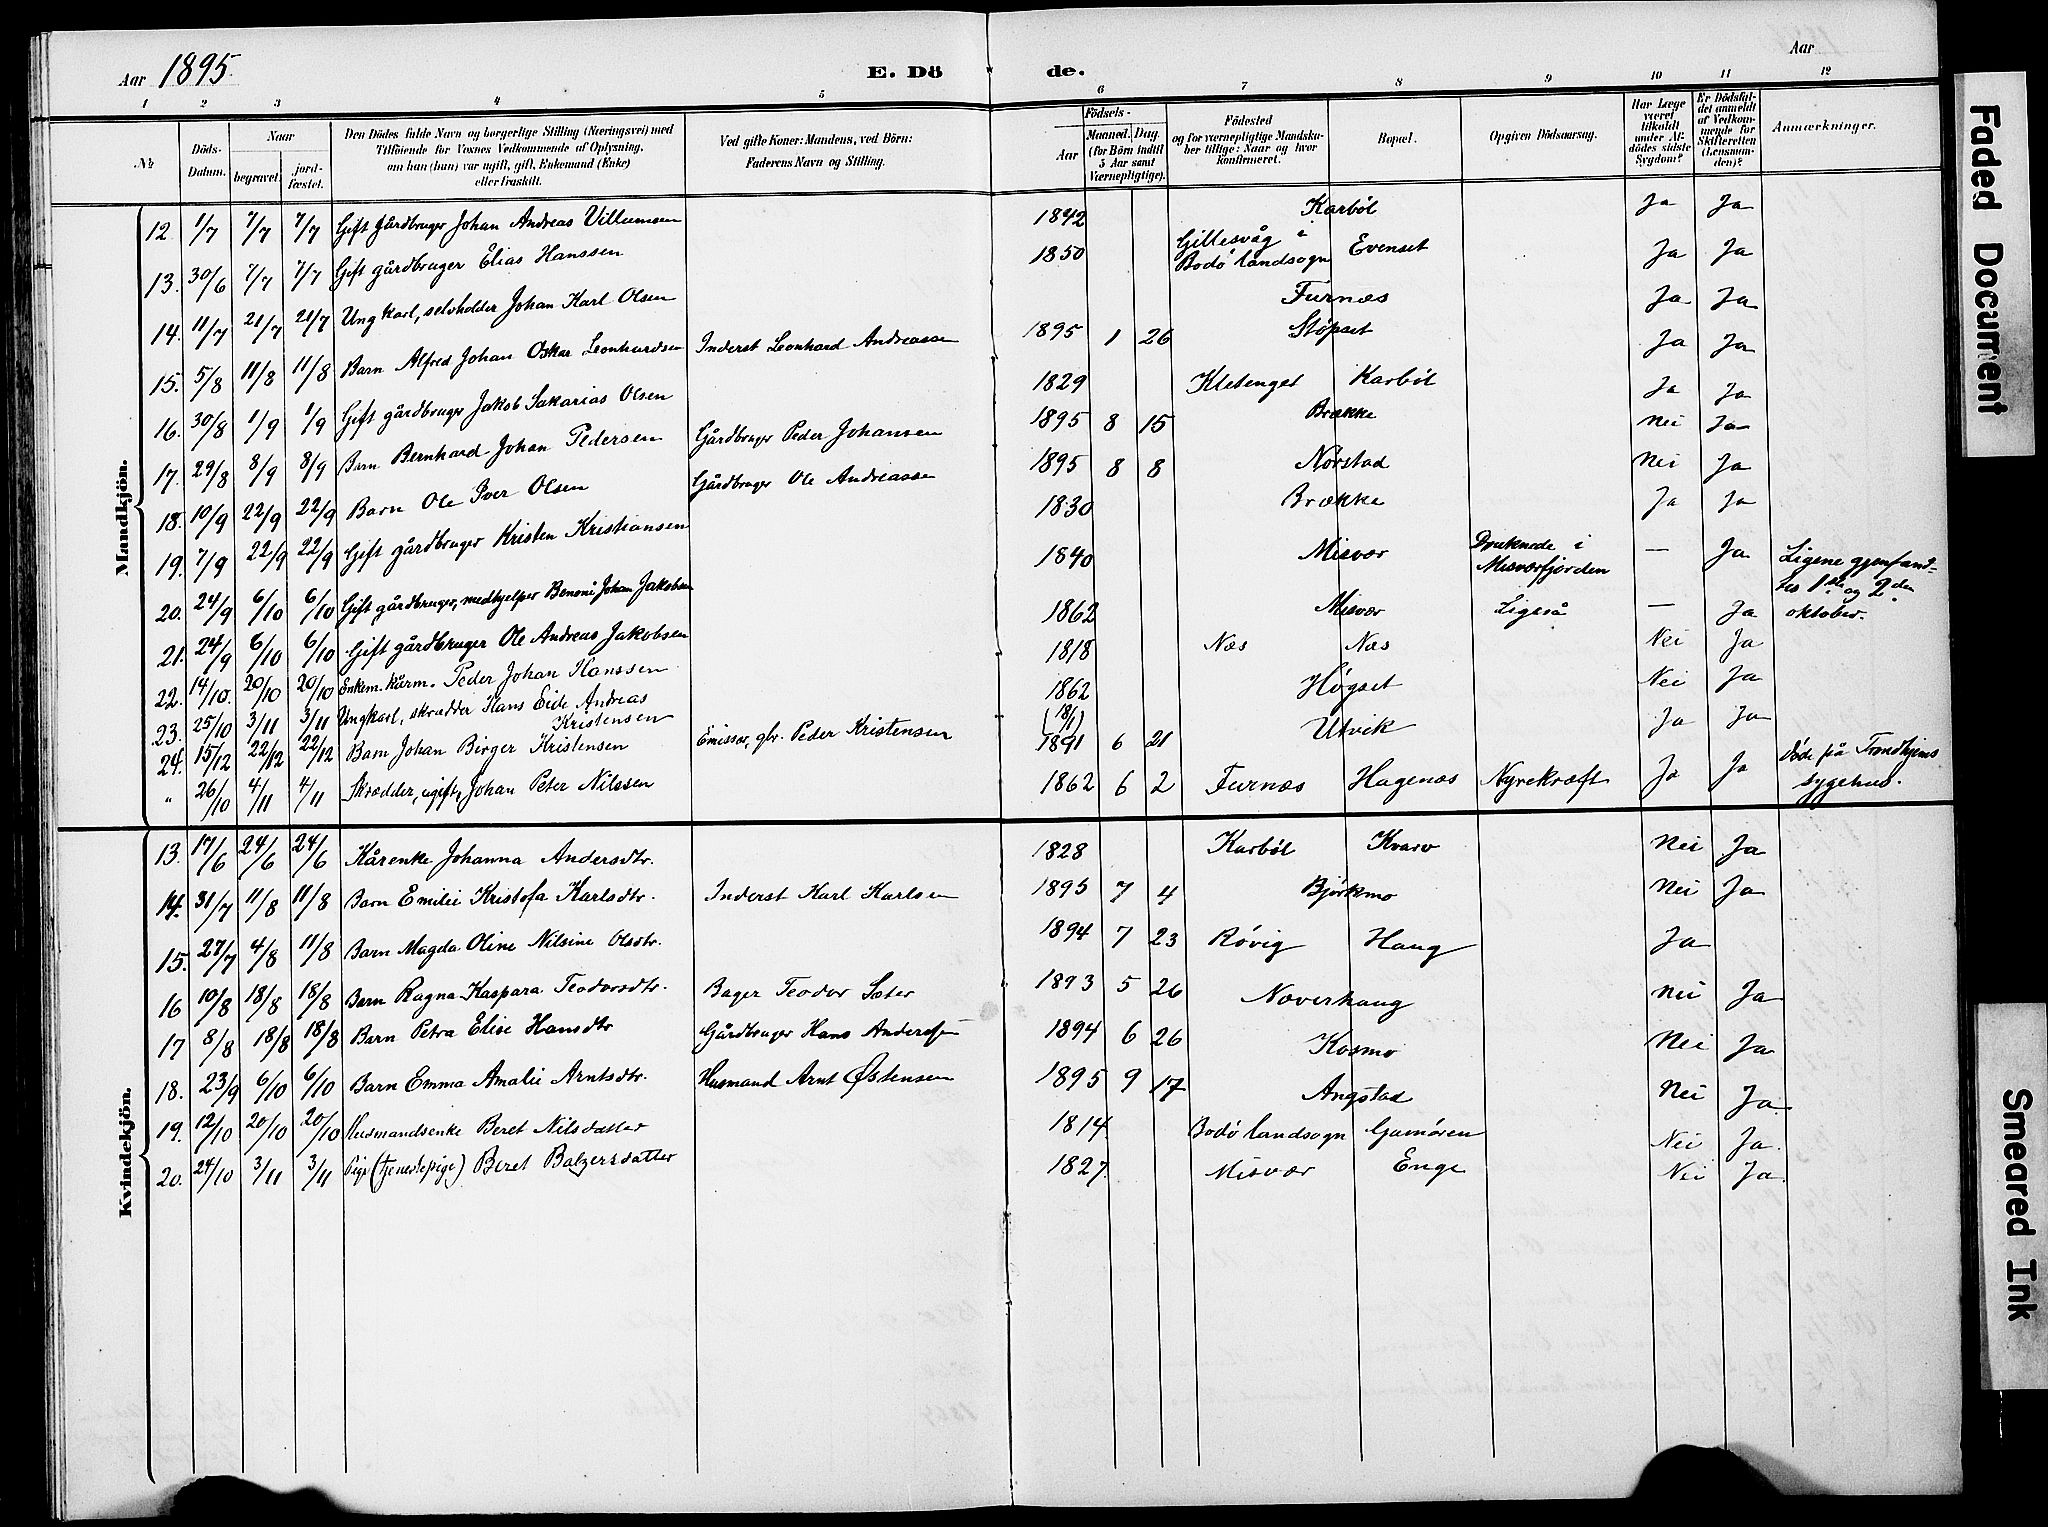 Aar 1895.
E. Döde.
Aar
1 2 3 4 5 6 7 8 9 10 11 12
№
Döds-Datum.
Naar
begravet.
jord-fæstet.
Den Dödes fulde Navn og borgerlige Stilling (Næringsvei) med
Tilföiende for Voxnes Vedkommende af Oplysning,
om han (hun) var ugift, gift, Enkemand (Enke)
eller fraskilt.
Ved gifte Koner: Mandens, ved Börn:
Faderens Navn og Stilling.
Födsels-
Aar
Maaned. Dag.
(for Börn indtil
5 Aar samt
Værnepligtige).
Födested
og for værnepligtige Mandska-
ber tillige: Naar og hvor
konfirmeret.
Bopæl.
Opgiven Dödsaarsag.
Har Læge
været
tilkaldt
under Af-
dödes sidste
Sygdom?
Er Dödsfal-
det anmeldt
af Vedkom-
mende for
Skifteretten
(Lensman-
den)?
Anmærkninger.
Mandkjön.
12. 1/7 7/7 7/7 Gift gårdbruger Johan Andreas Villumsen 1842 Karbøl Ja Ja
13. 30/6 7/7 7/7 Gift gårdbruger Elias Hanssen 1850 Gillesvåg i Bodø landsogn Evenset Ja Ja
14. 11/7 21/7 21/7 Ungkarl, selvholder Johan Karl Olsen Furnæs Ja Ja
15. 5/8 11/8 11/8 Barn Alfred Johan Oskar Leonhardsen Inderst Leonhard Andreassen 1895 1 26 Støpset Ja Ja
16. 30/8 1/9 1/9 Gift gårdbruger Jakob Sakarias Olsen 1829 Kletenget Karbøl Ja Ja
17. 29/8 8/9 8/9 Barn Bernhard Johan Pedersen Gårdbruger Peder Johansen 1895 8 15 Brække Nei Ja
18. 10/9 22/9 22/9 Barn Ole Iver Olsen Gårdbruger Ole Andreassen 1895 8 8 Nørstad Nei Ja
19. 7/9 22/9 22/9 Gift gårdbruger Kristen Kristiansen 1830 Brække Ja Ja
20. 24/9 6/10 6/10 Gift gårdbruger, medhjelper Benoni Johan Jakobsen 1840 Misvær Druknede i Misværfjorden — Ja Ligene gjenfand-
tes 1ste og 2den
21. 24/9 6/10 6/10 Gift gårdbruger Ole Andreas Jakobsen 1862 Misvær Ligeså — Ja oktober.
22. 14/10. 20/10 20/10 Enkem. kårm. Peder Johan Hanssen 1818 Næs Næs Nei Ja
23. 25/10 3/11 3/11 Ungkarl, skrædder Hans Eide Andreas Kristensen 1862 (18/1) Høgset Nei Ja
24. 15/12 22/12 22/12 Barn Johan Birger Kristensen Emissær, gbr. Peder Kristensen 1891 6 21 Utvik Ja Ja
" 26/10 4/11 4/11 Skrædder, ugift, Johan Peter Nilssen 1862 6 2 Furnæs Hagenæs Nyrekræft Ja Ja Døde på Trondhjems
sygehus.
Kvindekjön.
13. 17/6 24/6 24/6 Kårenke Johanna Andersdtr. 1828 Karbøl Kvarv Nei Ja
14. 31/7 11/8 11/8 Barn Emilie Kristofa Karlsdtr. Inderst Karl Karlsen 1895 7 4 Bjørkmo Nei Ja
15. 27/7 4/8 11/8 Barn Magda Oline Nilsine Olsdtr. 1894 7 23 Røvig Haug Ja
16 10/8 18/8 18/8 Barn Ragna Kaspara Teodorsdtr. Bager Teodor Sæter 1893 5 26 Noverhaug Nei Ja
17 8/8 18/8 18/8 Barn Petra Elise Hansdtr Gårdbruger Hans Anderssen 1894 6 26 Kosmo Nei Ja
18. 23/9 6/10 6/10 Barn Emma Amalie Arntsdtr. Husmand Arnt Østensen 1895 9 17 Angstad Nei Ja
19. 12/10 20/10 20/10 Husmandsenke Beret Nilsdatter 1814 Bodø landsogn Gamøren Nei Ja.
20. 24/10 3/11 3/11 Pige (tjenestepige) Beret Balzersdatter 1827 Misvær Enge Nei Ja.
Faded Document
Smeared Ink